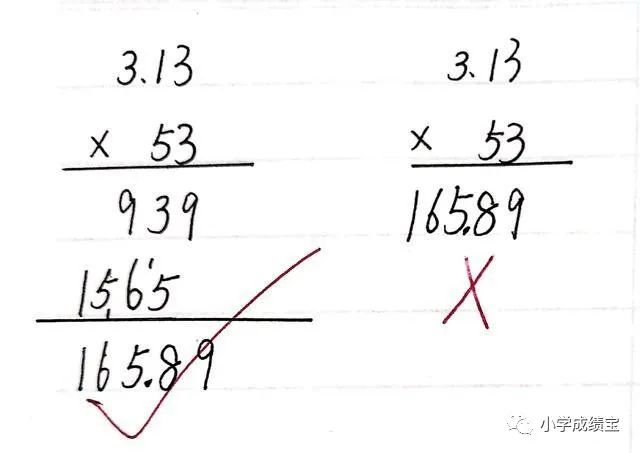 3.13
× 53
939
1565
165.89
3.13
× 53
165.89
小学成绩宝